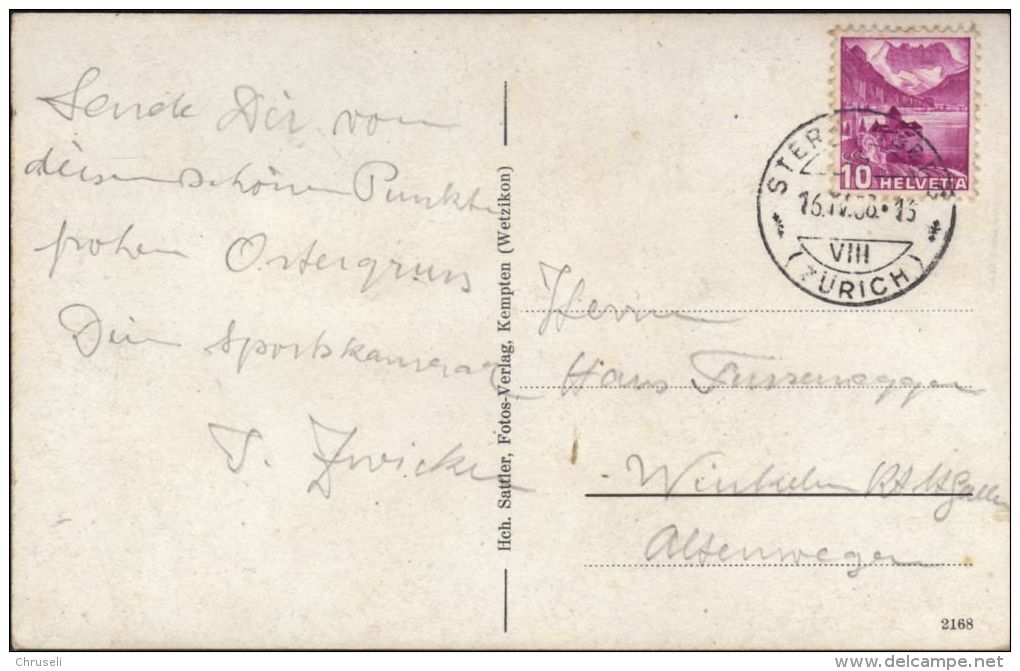 Sende Dir von
diesem schönen Punkte
frohen Ostergruss
Dein Sportskamerad
J. Zwicker
Hch. Sattler, Fotos-Verlag, Kempten (Wetzikon)
10 HELVETIA
VIII
(ZÜRICH)
Herrn
Hans Fussenegger
Winkeln Kt. St. Gallen
Altenwegen
2168
Chruseli
delcampe.net